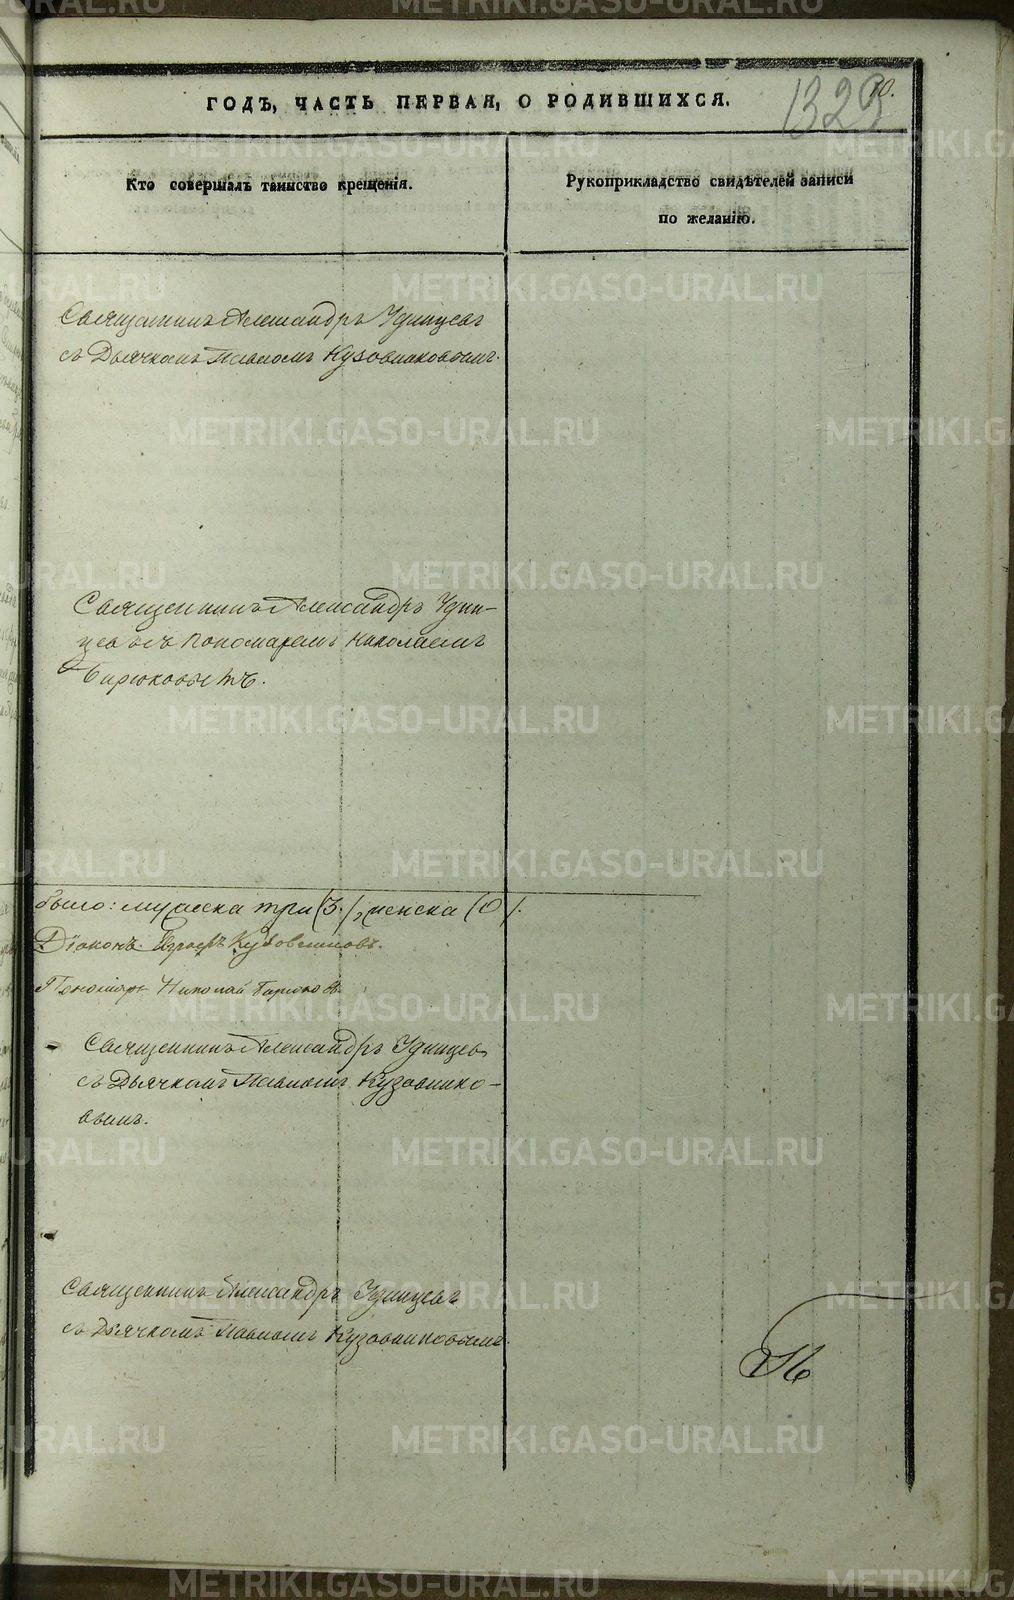 ГОДЪ, ЧАСТЬ ПЕРВАЯ, О РОДИВШИХСЯ.
1329
10.
Кто совершалъ таинство крещенія.
Рукоприкладство свидѣтелей записи
по желанію.
Священникъ Александръ Удинцевъ
съ Дьячкомъ Павломъ Кузовниковымъ.
Священникъ Александръ Удин-
цевъ съ Пономаремъ Николаемъ
Бирюковымъ.
было: мужеска три (3.), женска (0).
Діаконъ Кузовниковъ.
Пономарь Николай Бирюковъ.
Священникъ Александръ Удинцевъ
съ Дьячкомъ Павломъ Кузовнико-
вымъ.
Священникъ Александръ Удинцевъ
съ Дьячкомъ Павломъ Кузовниковымъ.
METRIKI.GASO-URAL.RU